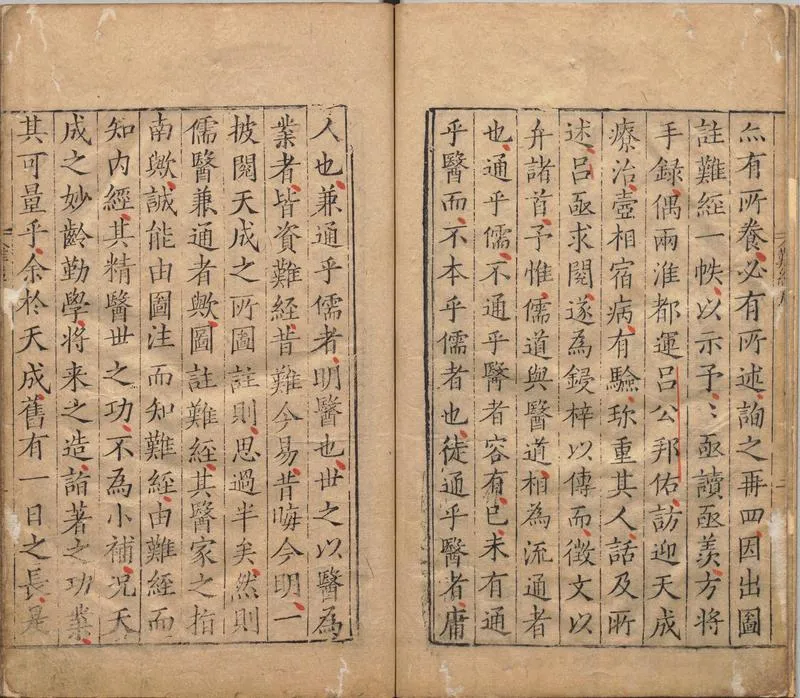 亦有所養必有所述詢之再四因出圖
註難經一帙以示予〻亟讀亟羨方將
手録偶兩淮都運吕公邦佑訪迎天成
療治壺相宿病有驗珎重其人話及所
述吕亟求閱遂為鋟梓以傳而徵文以
弁諸首予惟儒道與醫道相為流通者
也通乎儒不通乎醫者容有已未有通
乎醫而不本乎儒者也徒通乎醫者庸
人也兼通乎儒者明醫也世之以醫為
業者皆資難經昔難今易昔晦今明一
披閱天成之所圖註則思過半矣然則
儒醫兼通者歟圖註難經其醫家之指
南歟誠能由圖注而知難經由難經而
知内經其精醫世之功不為小補况天
成之妙齡勤學将来之造詣著之功業
其可量乎余於天成舊有一日之長是